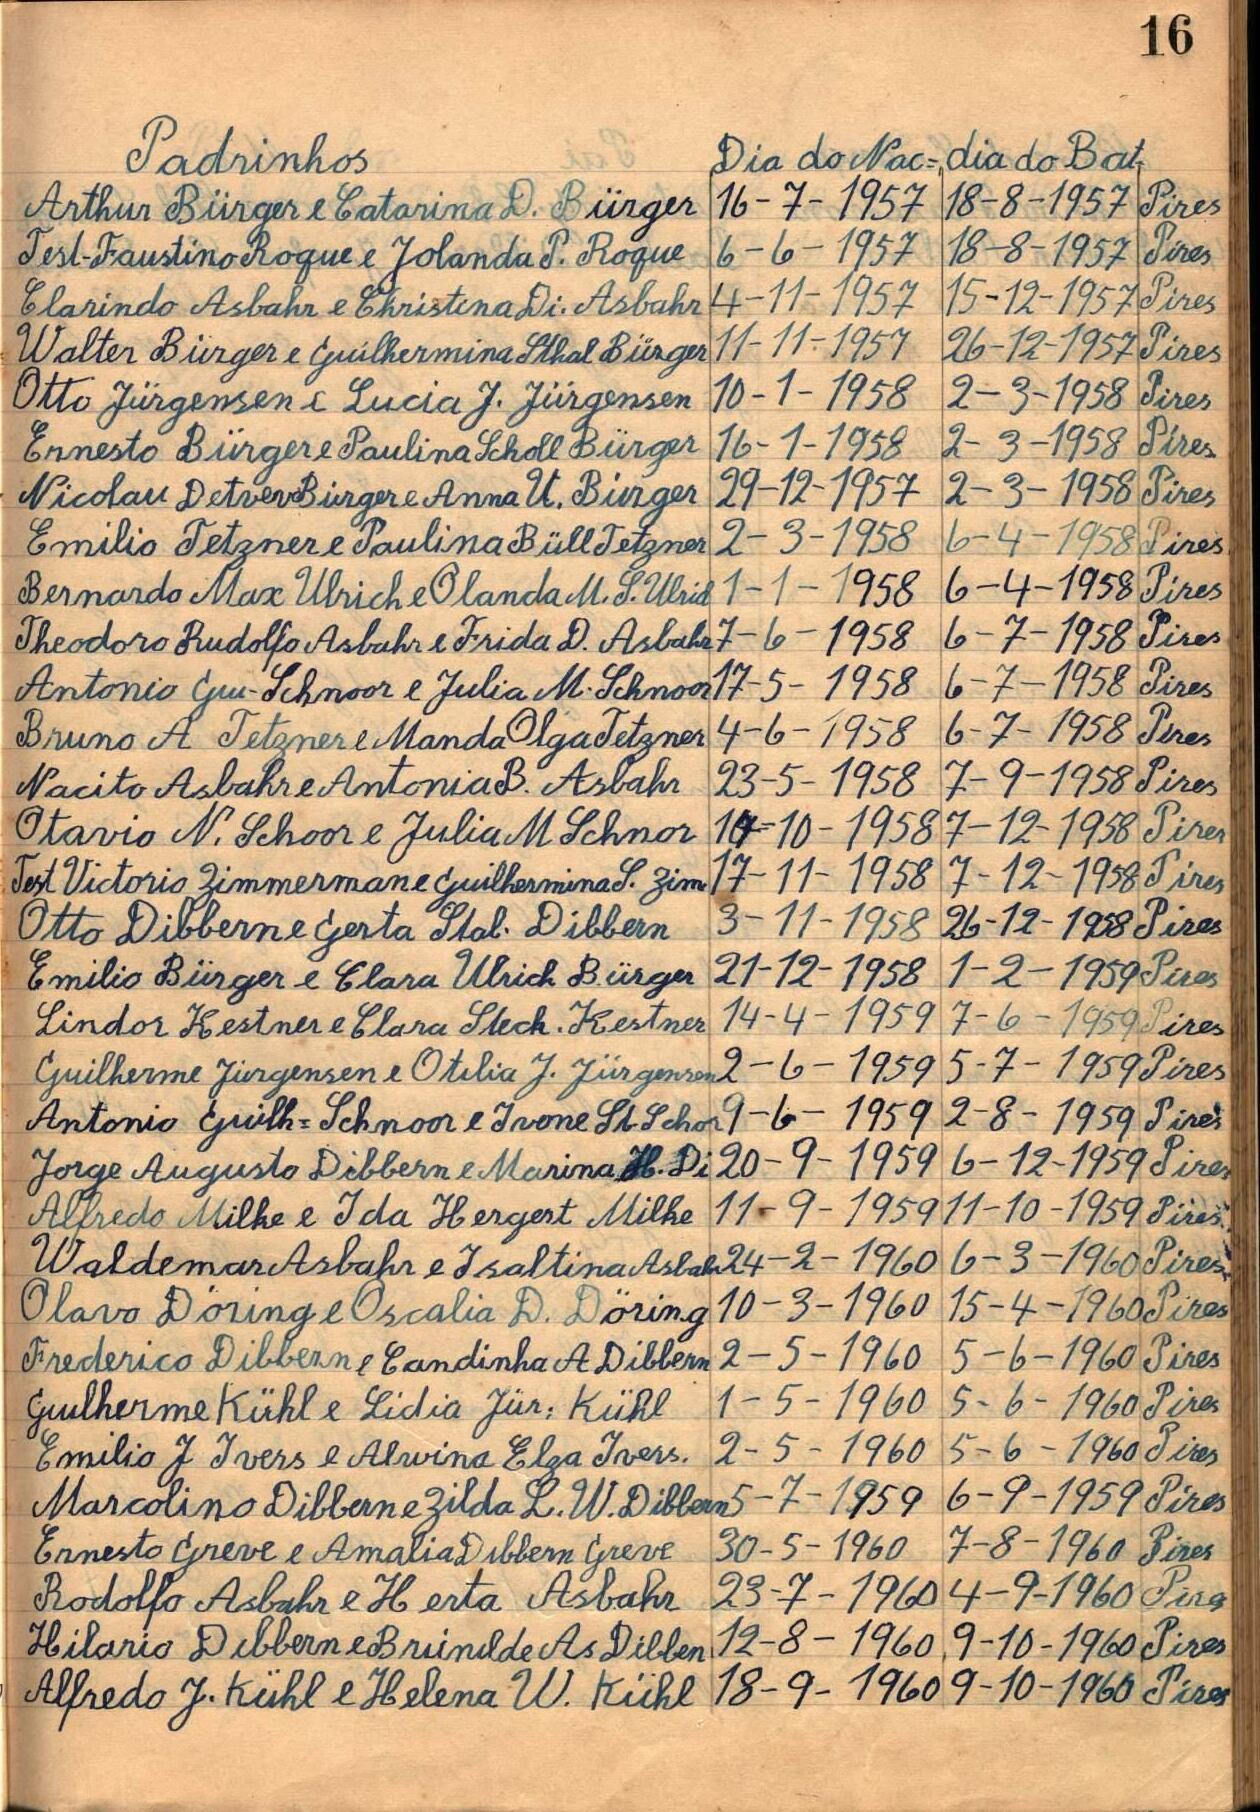 16
Padrinhos Dia do Nac=, dia do Bat.
Arthur Bürger e Catarina D. Bürger 16-7-1957 18-8-1957 Pires
Test-Faustino Roque e Jolanda P. Roque 6-6-1957 18-8-1957 Pires
Clarindo Asbahr e Christina Di. Asbahr 4-11-1957 15-12-1957 Pires
Walter Bürger e Guilhermina Sthal Bürger 11-11-1957 26-12-1957 Pires
Otto Jürgensen e Lucia J. Jürgensen 10-1-1958 2-3-1958 Pires
Ernesto Bürger e Paulina Scholl Bürger 16-1-1958 2-3-1958 Pires
Nicolau Bürger e Anna U. Bürger 29-12-1957 2-3-1958 Pires
Emilio Tetzner e Paulina Büll Tetzner 2-3-1958 6-4-1958 Pires
Bernardo Max Ulrich e Olanda M. S. Ulrid 1-1-1958 6-4-1958 Pires
Theodoro Rudolfo Asbahr e Frida D. Asbahr 7-6-1958 6-7-1958 Pires
Antonio Gui-Schnoor e Julia M. Schnoor 17-5-1958 6-7-1958 Pires
Bruno A Tetzner e Manda Olga Tetzner 4-6-1958 6-7-1958 Pires
Nacito Asbahr e Antonia B. Asbahr 23-5-1958 7-9-1958 Pires
Otavio N. Schoor e Julia M Schnor 10-1958 7-12-1958 Pires
Test Victorio Zimmerman e Guilhermina S. Zim 17-11-1958 7-12-1958 Pires
Otto Dibbern e Gerta Stal. Dibbern 3-11-1958 26-12-1958 Pires
Emilio Bürger e Clara Ulrich Bürger 21-12-1958 1-2-1959 Pires
Lindor Kestner e Clara Stech. Kestner 14-4-1959 7-6-1959 Pires
Guilherme Jürgensen e Otilia J. Jürgensen 2-6-1959 5-7-1959 Pires
Antonio Guilh= Schnoor e Ivone St. Schor 9-6-1959 2-8-1959 Pires
Jorge Augusto Dibbern e Marina H. Di 20-9-1959 6-12-1959 Pires
Alfredo Milke e Ida Hergert Milke 11-9-1959 11-10-1959 Pires
Waldemar Asbahr e Isaltina Asbah 24-2-1960 6-3-1960 Pires
Olavo Döring e Oscalia D. Döring 10-3-1960 15-4-1960 Pires
Frederico Dibbern e Candinha A Dibbern 2-5-1960 5-6-1960 Pires
Guilherme Kühl e Lidia Jür: Kühl 1-5-1960 5-6-1960 Pires
Emilio J Ivers e Alwina Elza Ivers. 2-5-1960 5-6-1960 Pires
Marcolino Dibbern e Zilda L. W. Dibbern 5-7-1959 6-9-1959 Pires
Ernesto Greve e Amalia Dibbern Greve 30-5-1960 7-8-1960 Pires
Rodolfo Asbahr e Herta Asbahr 23-7-1960 4-9-1960 Pires
Hilario Dibbern e Brunilde As Dibben 12-8-1960 9-10-1960 Pires
Alfredo J. Kühl e Helena W. Kühl 18-9-1960 9-10-1960 Pires